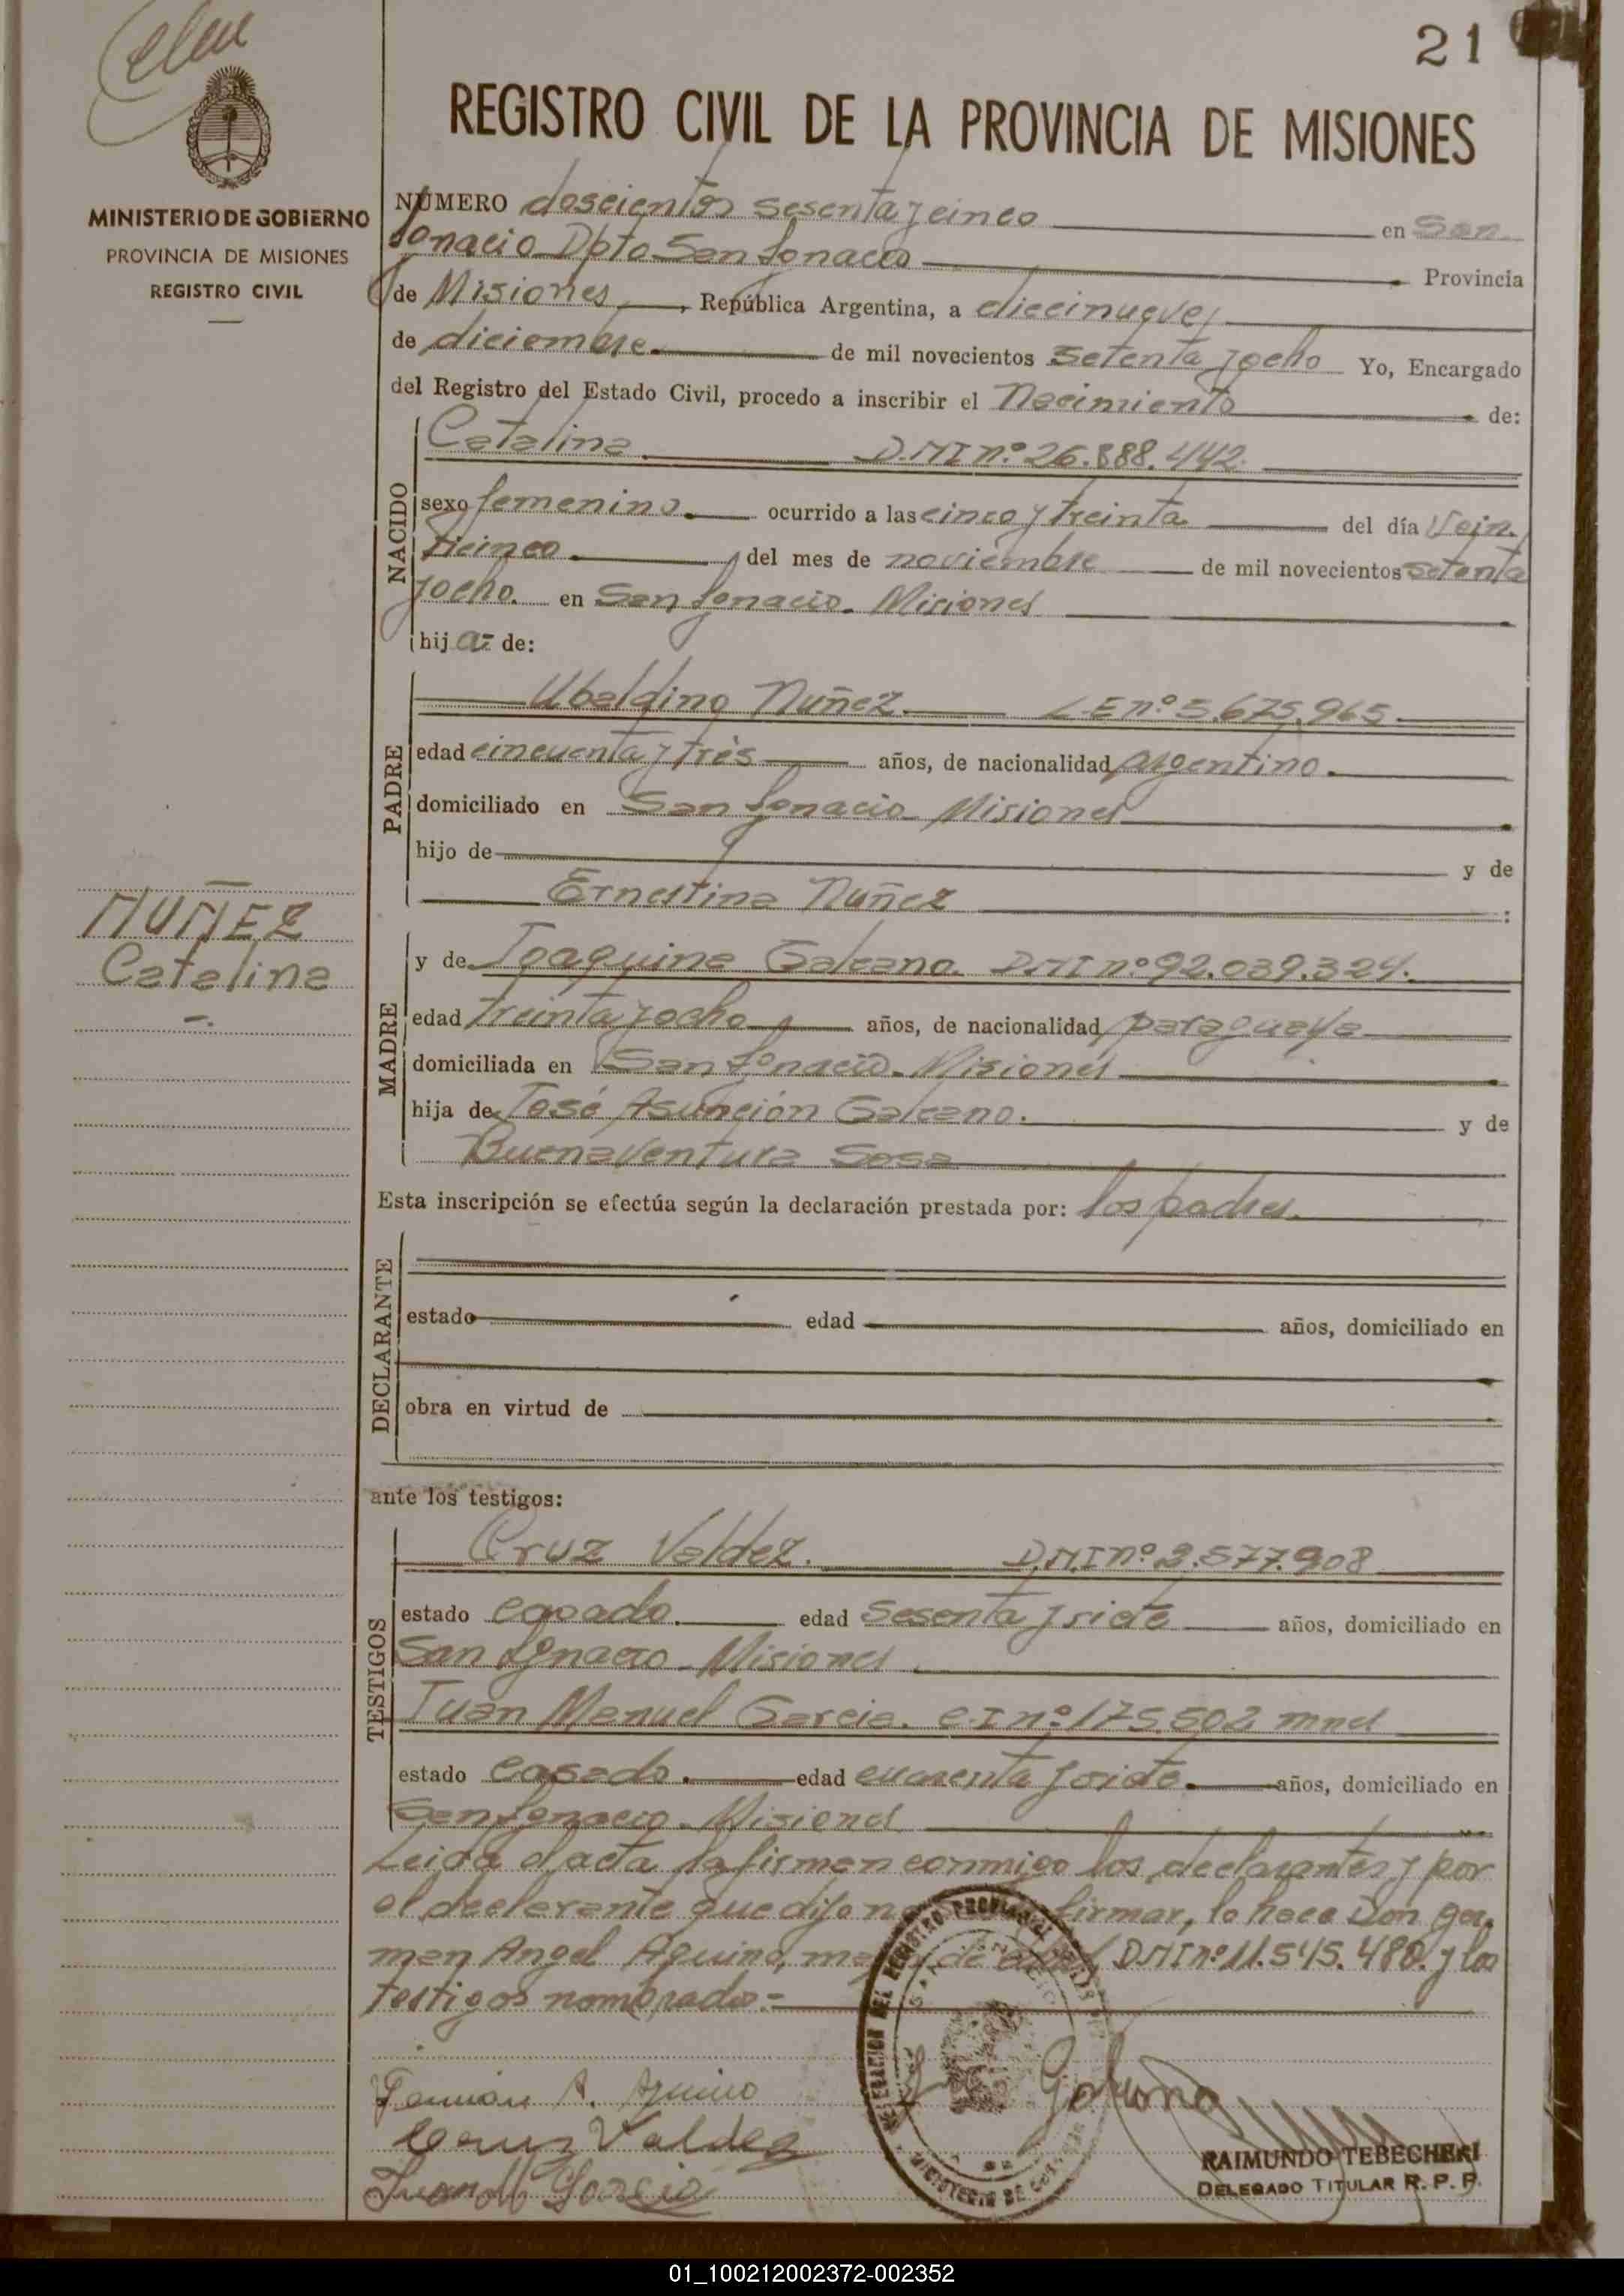 21
REGISTRO CIVIL DE LA PROVINCIA DE MISIONES
MINISTERIO DE GOBIERNO
PROVINCIA DE MISIONES
REGISTRO CIVIL
NÚMERO doscientos sesenta y cinco en San
Ignacio Dpto San Ignacio Provincia
de Misiones, República Argentina, a diecinueve
de diciembre de mil novecientos setenta y ocho Yo, Encargado
del Registro del Estado Civil, procedo a inscribir el Nacimiento de:
NACIDO
Catalina D.N.I nº 26.888.442.
sexo femenino. ocurrido a las cinco y treinta del día Vein-
ticinco del mes de noviembre de mil novecientos setenta
y ocho. en San Ignacio. Misiones
hija= de:
PADRE
Ubaldino Nuñez. L.E nº 5.675.965.
edad cincuenta y tres años, de nacionalidad argentino.
domiciliado en San Ignacio Misiones
hijo de y de
Ernestina Nuñez :
NUÑEZ
Catalina
MADRE
y de Joaquina Galeano. D.N.I nº 92.039.324.
edad treinta y ocho años, de nacionalidad paraguaya
domiciliada en San Ignacio. Misiones
hija de José Asunción Galeano. y de
Buenaventura Sosa
Esta inscripción se efectúa según la declaración prestada por: los padres.
DECLARANTE
estado edad años, domiciliado en
obra en virtud de
ante los testigos:
TESTIGOS
Cruz Valdez. D.N.I nº 2.577.908
estado casado. edad sesenta y siete años, domiciliado en
San Ignacio - Misiones
Juan Manuel Garcia. C.I nº 175.502 mnes
estado casado. edad cuarenta y siete. años, domiciliado en
San Ignacio - Misiones
Leida el acta la firman conmigo los declarantes y por
el declarante que dijo no firmar, lo hace Don Ger-
man Angel Aquino, mayor de edad, D.N.I nº 11.545.480. y los
testigos nombrados.-
DELEGACION DEL REGISTRO PROVINCIAL
SAN IGNACIO
MINISTERIO DE GOBIERNO
German A. Aquino
J Galeano
Cruz Valdez
Juan M Garcia
RAIMUNDO TEBECHERI
DELEGADO TITULAR R. P. P.
01_100212002372-002352